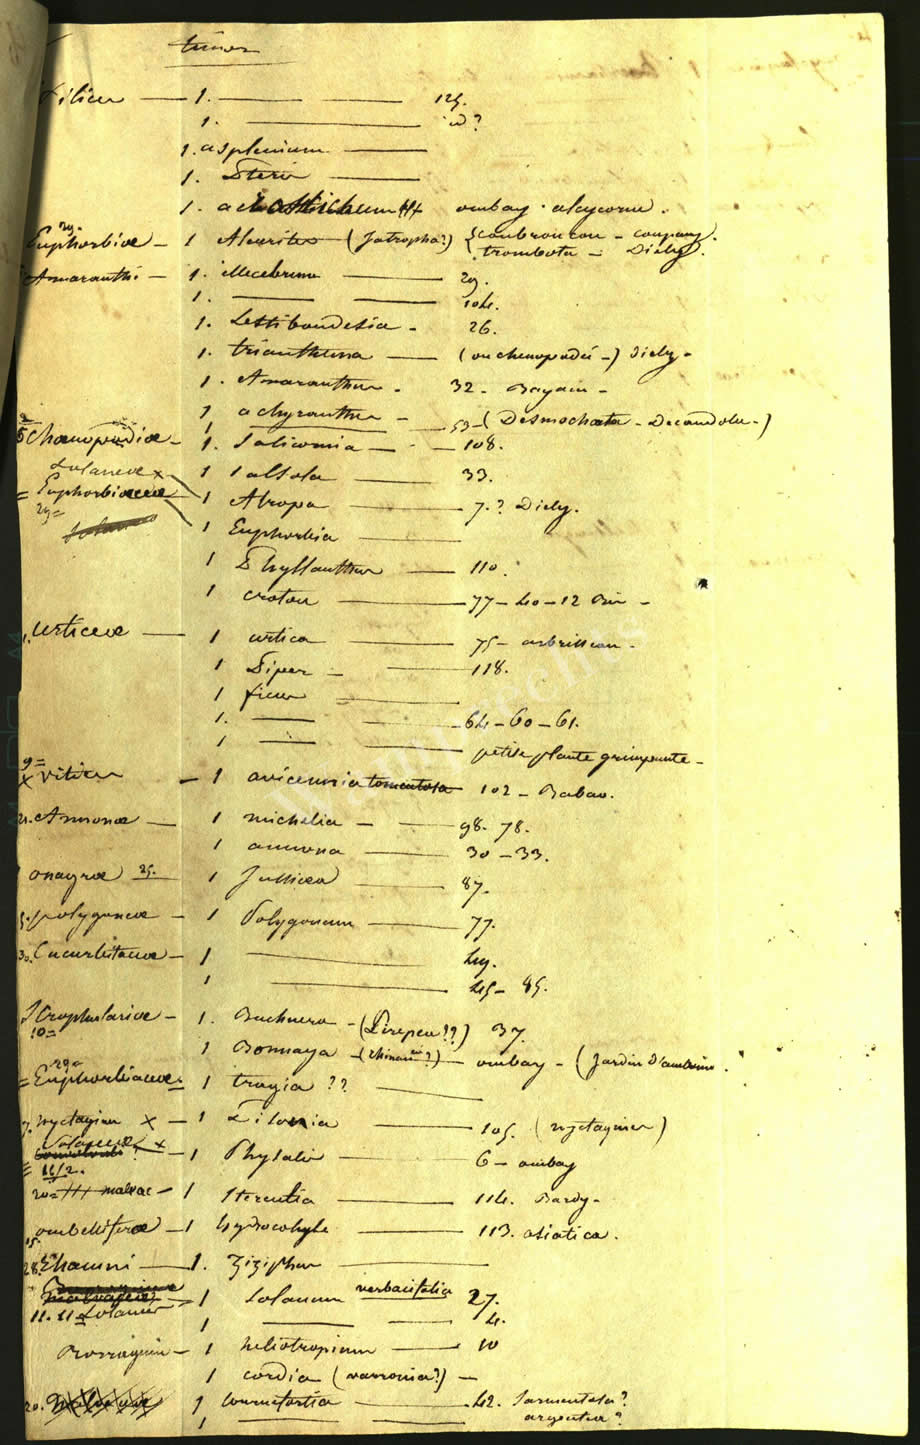 timor
Filices — 1. — — 125.
1. — id?
1. asplenium —
1. Pteris —
1. acrostichum ombay. alcycorne.
29.
Euphorbiæ — 1 Aleurites — (Jatropha?) { coupang.
trombota — Diely.
Amaranthi — 1. illecebrum — 29.
1. — — 104.
1. Lestiboudesia — 26.
1. trianthema — (ou chenopodée —) Diely —
1. Amaranthus — 32 —
1 achyranthes — 53 — (Desmochæta — Decandole —)
5 Chænopodiæ — 1. Salicornia — 108.
Solaneæ x 1 Salsola — 33.
= Euphorbiaceæ 1 Atropa — 7.? Diely.
29 =
1 Euphorbia —
1 Phyllanthus — 110.
1 croton — 77 — 40 — 12
1. Urticeæ — 1 urtica — 75 — arbrisseau.
1 Piper — 118.
1 ficus —
1. — — 64 — 60 — 61.
1 — — petite plante grimpante —
9 =
x Vitices — 1 avicennia tomentosa 102 — Babao.
21. Annonæ — 1 michelia — 98. 78.
1 annona — 30 — 33.
onagræ 25. 1 Jussiæa — 87.
5. polygoneæ — 1 Polygonum — 77.
30. Cucurbitaceæ — 1 — 49.
1 — 45 — 85.
Scrophulariæ — 1. Buchnera — ( ??) 37.
10 =
1 Bonnaya — ombay — (Jardin
29 =
= Euphorbiaceæ. 1 tragia ?? —
7. nyctaginæ x — 1 — 105. (nyctagineæ)
Solaneæ x
— 1 Physalis — 6 — ombay
= 11/2.
20 = malvac — 1 Sterculia — 114. Bardy —
ombelliferæ — 1 hydrocotyle — 113. asiatica.
15.
28. Rhamni — 1. Ziziphus —
11. 11 Solaneæ 1 Solanum verbascifolia 27.
1 — — 4.
Borraginæ — 1 heliotropium — 10
1 cordia (varronia?) —
20. 1 tournefortia — 42. Sarmentosa?
1 — — argentea?